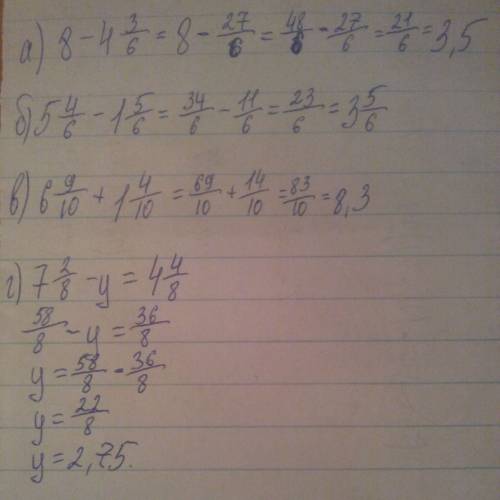 а) 8 - 4 3/6 = 8 - 27/6 = 48/6 - 27/6 = 21/6 = 3,5
б) 5 4/6 - 1 5/6 = 34/6 - 11/6 = 23/6 = 3 5/6
в) 6 9/10 + 1 4/10 = 69/10 + 14/10 = 83/10 = 8,3
г) 7 2/8 - y = 4 4/8
58/8 - y = 36/8
y = 58/8 - 36/8
y = 22/8
y = 2,75.